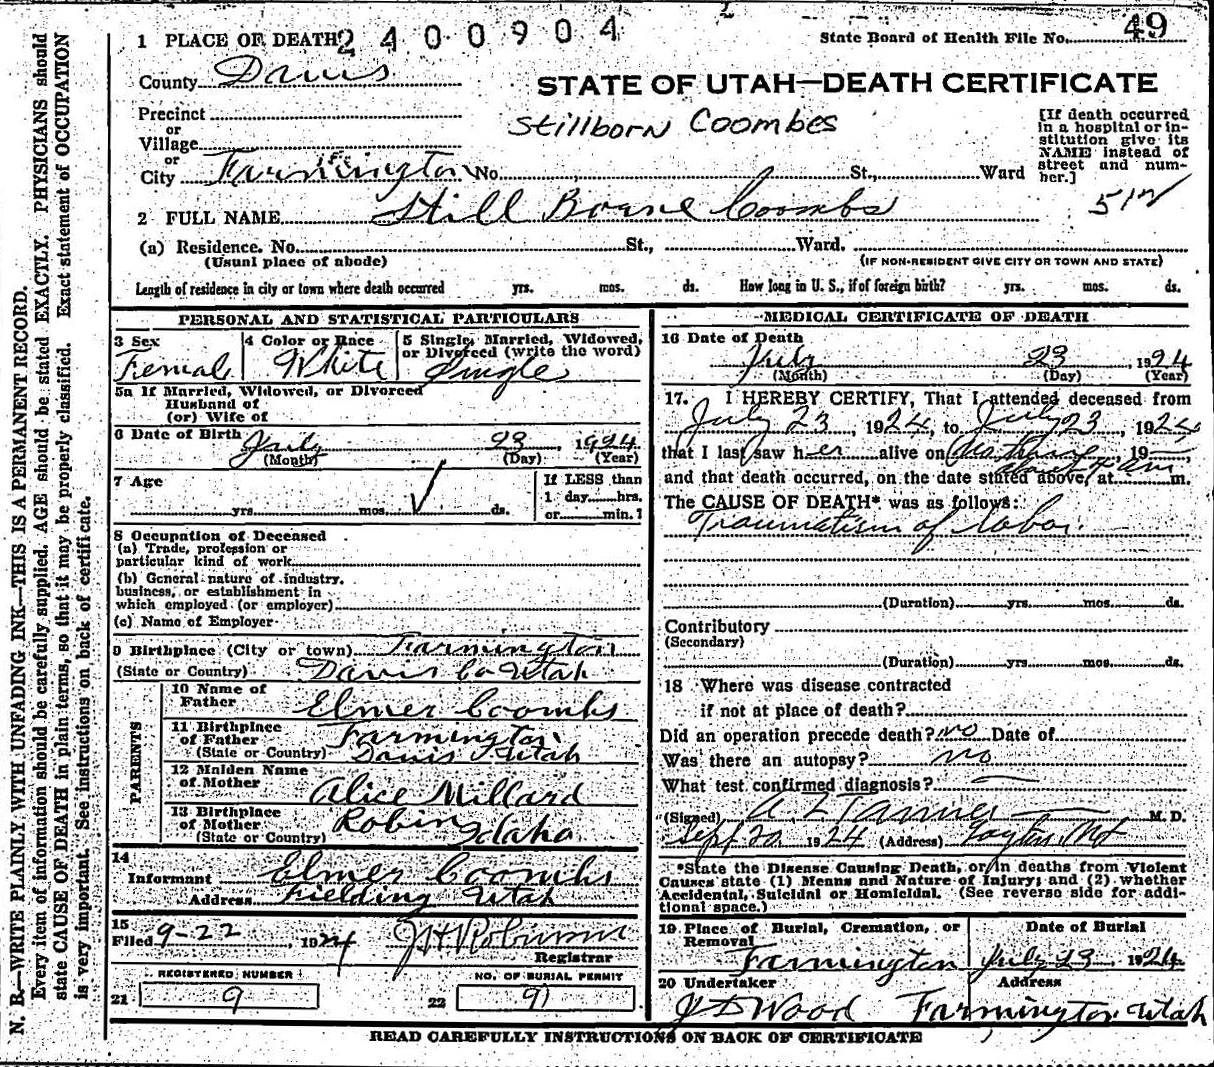 2400904
1 PLACE OF DEATH
State Board of Health File No. 49
County Davis
STATE OF UTAH—DEATH CERTIFICATE
Precinct
or
Village
or
City Farmington No. St., Ward
Stillborn Coombes
[If death occurred in a hospital or institution give its NAME instead of street and number.]
2 FULL NAME Still Borne Coombs
(a) Residence. No. St., Ward.
(Usual place of abode) (IF NON-RESIDENT GIVE CITY OR TOWN AND STATE)
Length of residence in city or town where death occurred yrs. mos. ds. How long in U. S., if of foreign birth? yrs. mos. ds.
PERSONAL AND STATISTICAL PARTICULARS
3 Sex
Female
4 Color or Race
White
5 Single, Married, Widowed, or Divorced (write the word)
Single
5a If Married, Widowed, or Divorced
Husband of
(or) Wife of
6 Date of Birth July 23, 1924
(Month) (Day) (Year)
7 Age
yrs. mos. ds.
If LESS than
1 day hrs.
or min.?
8 Occupation of Deceased
(a) Trade, profession or
particular kind of work
(b) General nature of industry,
business, or establishment in
which employed (or employer)
(c) Name of Employer
9 Birthplace (City or town) Farmington
(State or Country) Davis Co Utah
PARENTS
10 Name of
Father Elmer Coombs
11 Birthplace
of Father Farmington
(State or Country) Davis Utah
12 Maiden Name
of Mother Alice Millard
13 Birthplace
of Mother Robin Idaho
(State or Country)
14
Informant Elmer Coombs
Address Fielding Utah
15
Filed 9-22, 1924 Registrar
REGISTERED NUMBER NO. OF BURIAL PERMIT
21 9 22 9
MEDICAL CERTIFICATE OF DEATH
16 Date of Death
July 23 1924
(Month) (Day) (Year)
17. I HEREBY CERTIFY, That I attended deceased from
July 23, 1924, to July 23, 1924,
that I last saw her alive on , 19 ,
and that death occurred, on the date stated above, at m.
The CAUSE OF DEATH* was as follows:
Traumatism of labor
(Duration) yrs. mos. ds.
Contributory
(Secondary)
(Duration) yrs. mos. ds.
18 Where was disease contracted
if not at place of death?
Did an operation precede death? no Date of
Was there an autopsy? no
What test confirmed diagnosis?
(Signed) A. L. Tanner M. D.
Sept 20 1924 (Address) Layton, Ut
*State the Disease Causing Death, or in deaths from Violent
Causes state (1) Means and Nature of Injury; and (2) whether
Accidental, Suicidal or Homicidal. (See reverse side for additional space.)
19 Place of Burial, Cremation, or
Removal
Farmington
Date of Burial
July 23, 1924
20 Undertaker
J D Wood
Address
Farmington Utah
READ CAREFULLY INSTRUCTIONS ON BACK OF CERTIFICATE
N. B.—WRITE PLAINLY WITH UNFADING INK—THIS IS A PERMANENT RECORD.
Every item of information should be carefully supplied. AGE should be stated EXACTLY. PHYSICIANS should
state CAUSE OF DEATH in plain terms, so that it may be properly classified. Exact statement of OCCUPATION
is very important. See instructions on back of certificate.